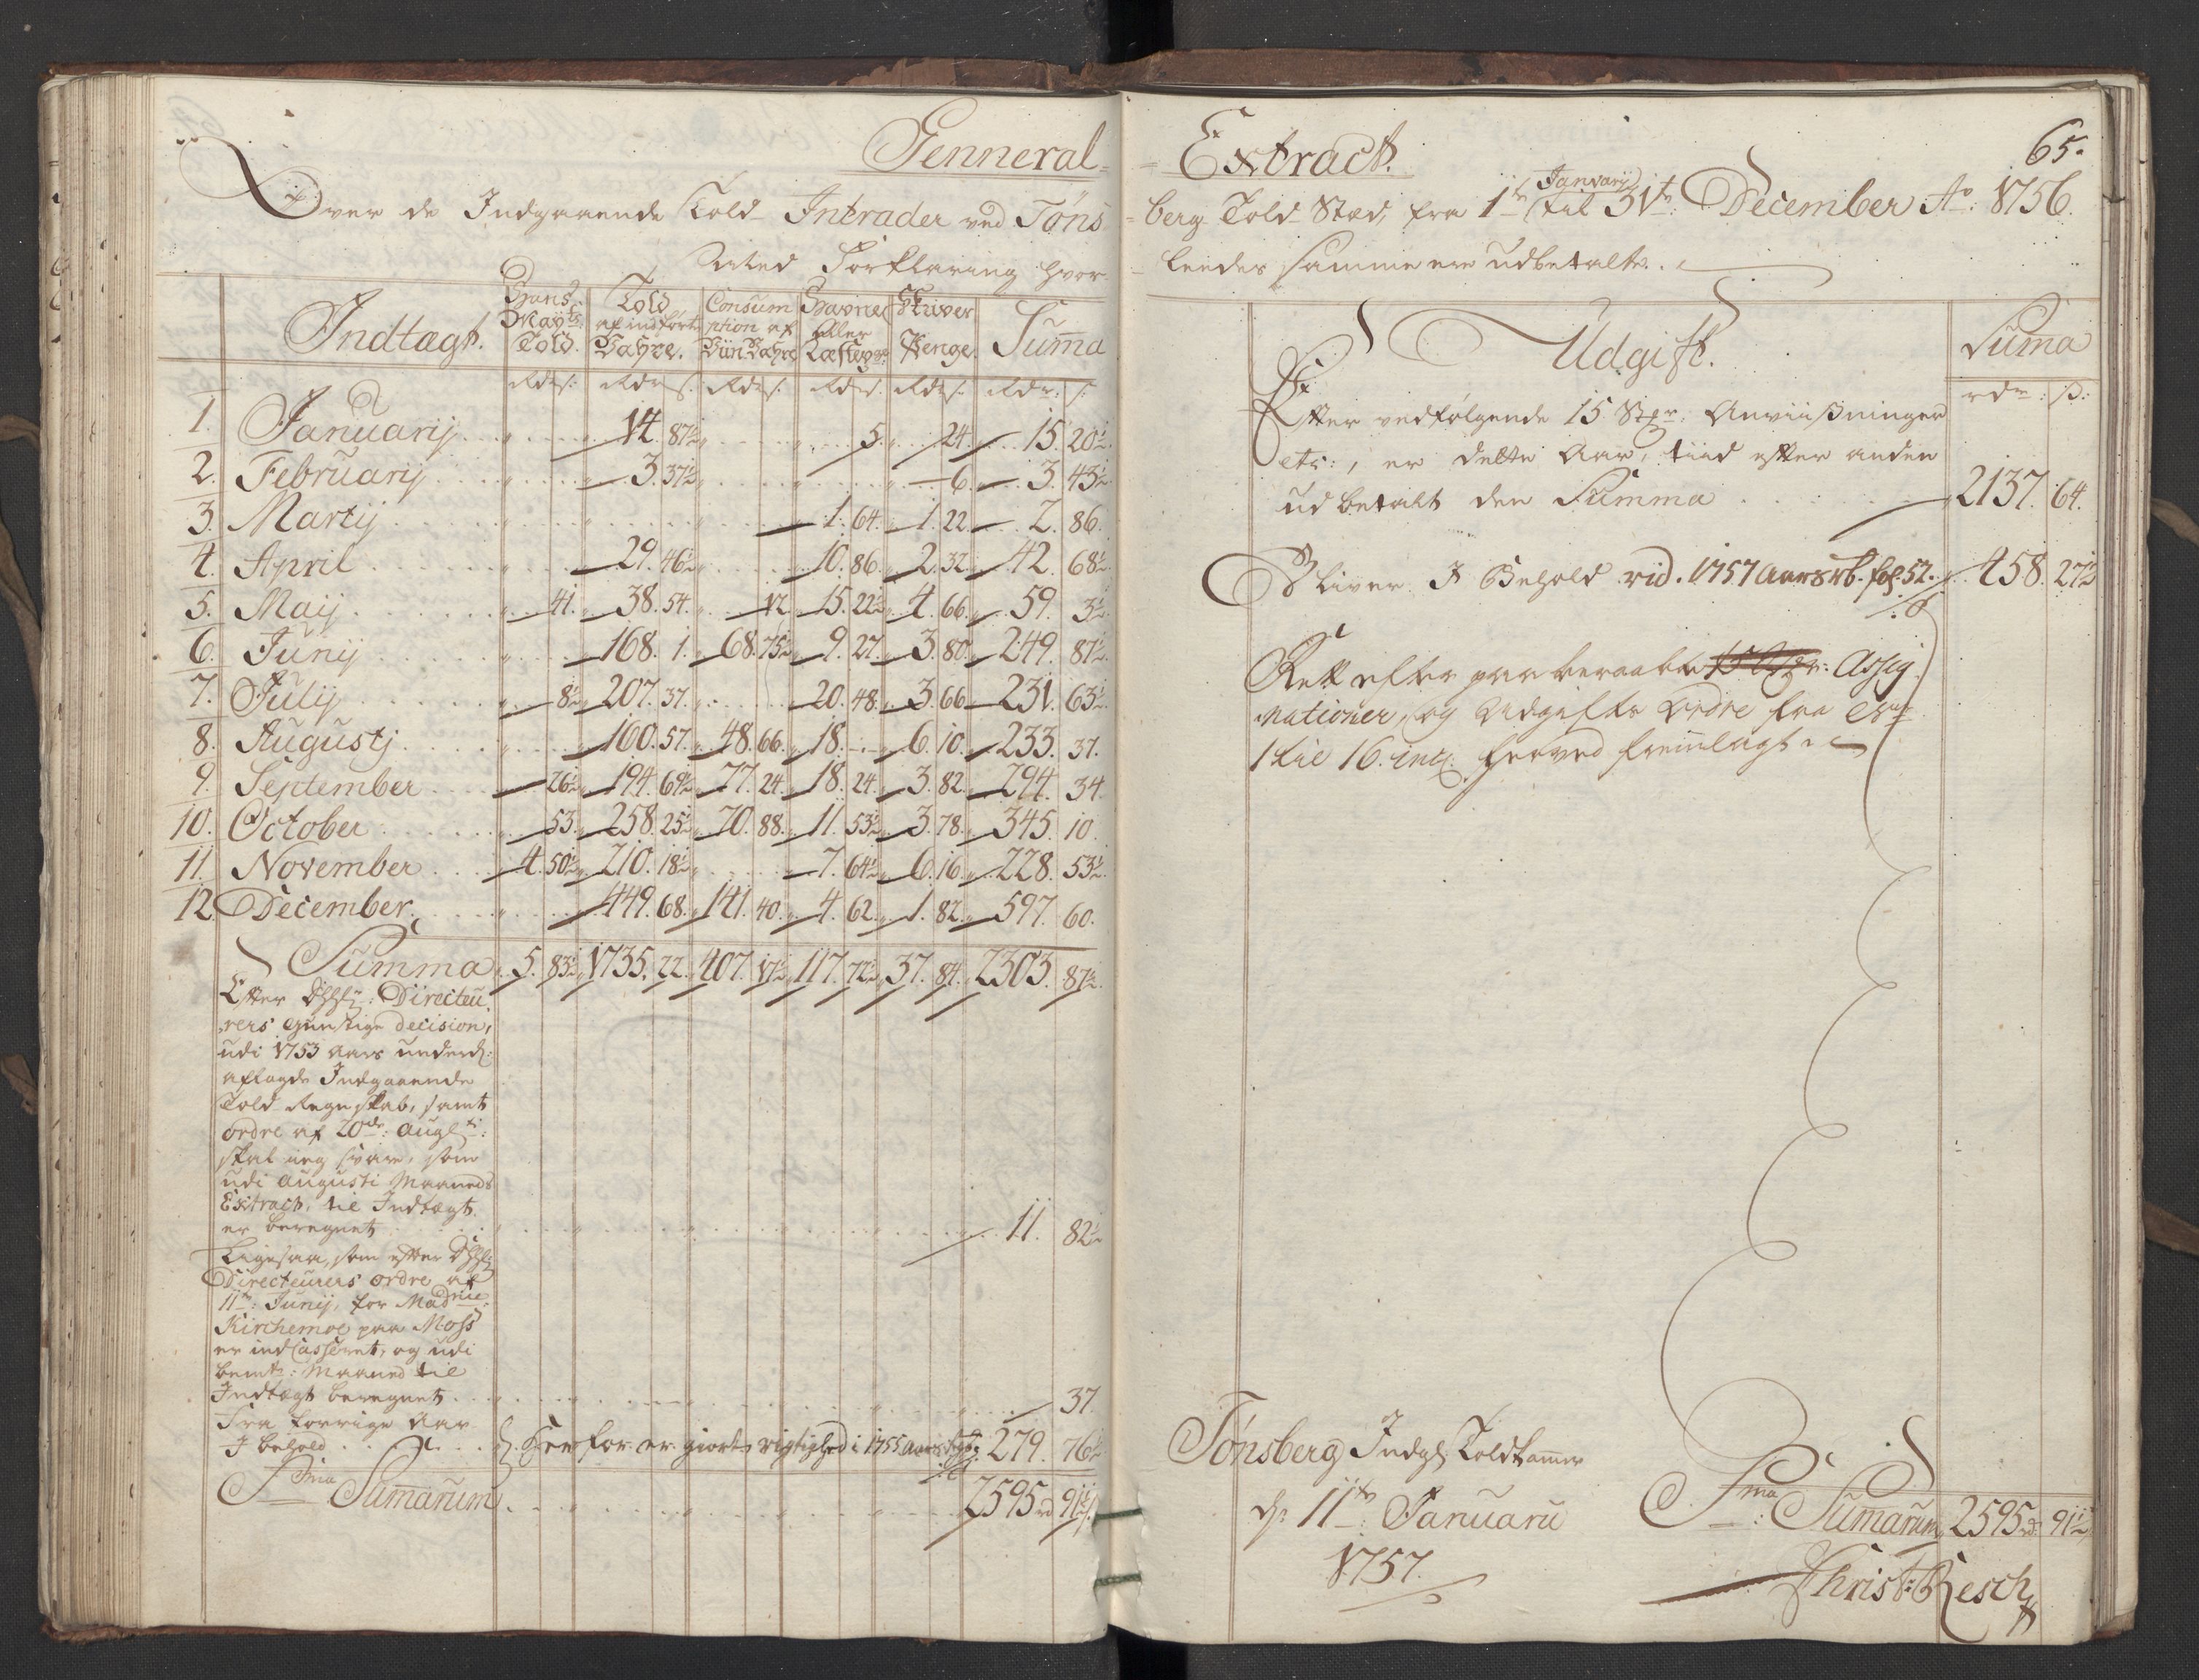 Genneral-
Over de Indgaaende Told Intrader ved Tøns
Med Forklaring hvor
Indtægt.
Hans May.ts Told.
Told af indført Vahre.
Consumption af Vahre
Havne eller Læstepge
Skriver Penge
Suma
Rdr s: Rdr s. Rdr s: Rdr s. Rdr s: Rdr: s:
1. Januarij 14. 87½ 5. 24. 15. 20½
2. Februarij 3. 37½ 6. 3. 43½
3. Martij 1. 64. 1. 22. 2. 86.
4. April 29. 46½ 10. 86. 2. 32. 42. 68½
5. Maij 41. 38. 54. 12. 15. 22½ 4. 66. 59. 3½
6. Junij 168. 1. 68. 75½ 9. 27. 3. 80. 249. 87½
7. Julij 8½ 207. 37. 20. 48. 3. 66. 231. 63½
8. Augustj 160. 57. 48. 66. 18. - 6. 10. 233. 37.
9. September 26½ 194. 69½ 77. 24. 18. 24. 3. 82. 294. 34.
10. October 53. 258. 25½ 70. 88. 11. 53½ 3. 78. 345. 10.
11. November 4. 50½ 210. 18½ 7. 64½ 6. 16. 228. 53½
12. December 449. 68. 141. 40. 4. 62. 1. 82. 597. 60.
Summa 5. 83½ 1735. 22. 407. 17½ 117. 72½ 37. 84. 2303. 87½
Efter Directeu
rers gunstige decision,
udi 1753 Aars
aflagde Indgaaende
Told Regnskab, samt
ordre af 20de: Aug
skal ieg svare, som
udi Augusti Maaneds
Extract, til Indtægt
er beregnet 11. 82½
Ligesaa, som efter
Directeurers ordre af
11te: Junij, for Mad
Kirchemoe paa Moss
er indCasseret, og udi
bemte: Maaned til
Indtægt beregnet 37.
Fra forrige Aar
I behold herfor er giort rigtighed i 1755 Aars 279. 76½
Sma Sumarum 2595 rd 91½ s.
Extract.
65.
berg Told Stæd, fra 1te Januarij til 31te: December Ao: 1756.
leedes samme ere udbetalte.
Udgift.
Suma
rdr: ß:
Efter vedfølgende 15 Stkr: Anviisninger
etc:, er dette Aar, tiid efter anden
udbetalt den Summa 2137. 64.
Bliver I Behold vid. 1757 Aars fol. 52. 458. 27½
Rett efter paaberaabte Assig
nationer, og Udgifts Ordre fra No
1 til 16. incl. herved fremlagt
Tønsberg Indg Toldkammer
d: 11te: Januarii
1757.
Sma: Sumarum 2595 rd: 91½
Christ: Resch